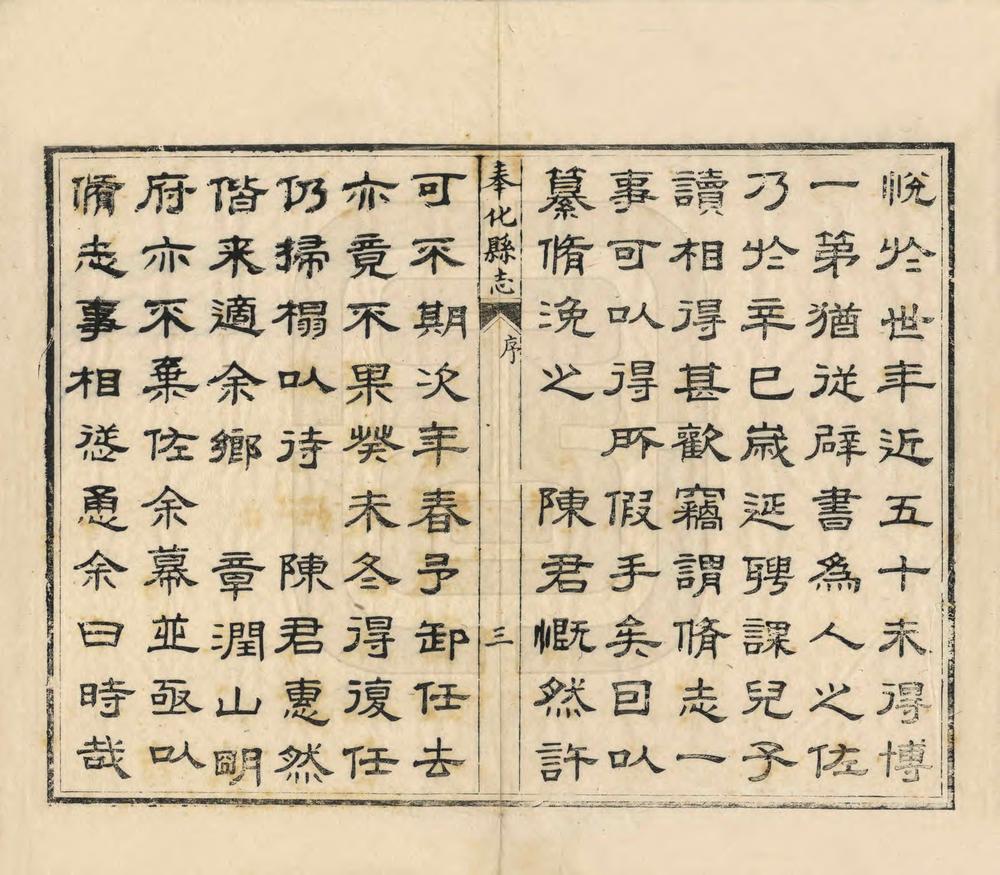 悅於世年近五十未得博
一第猶從辟書爲人之佐
乃於辛巳歲延聘課兒子
讀相得甚歡竊謂脩志一
事可以得所假手矣囙以
纂脩浼之　陳君慨然許
奉化縣志　序　三
可不期次年春予卸任去
亦竟不果癸未冬得復任
仍掃榻以待　陳君惠然
偕来適余鄉　章潤山明
府亦不棄佐余幕並亟以
脩志事相慫恿余曰時哉